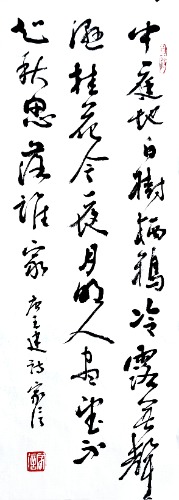 中庭地白樹栖鴉冷露無聲
濕桂花今夜月明人盡望不
知秋思落誰家
唐王建詩家信